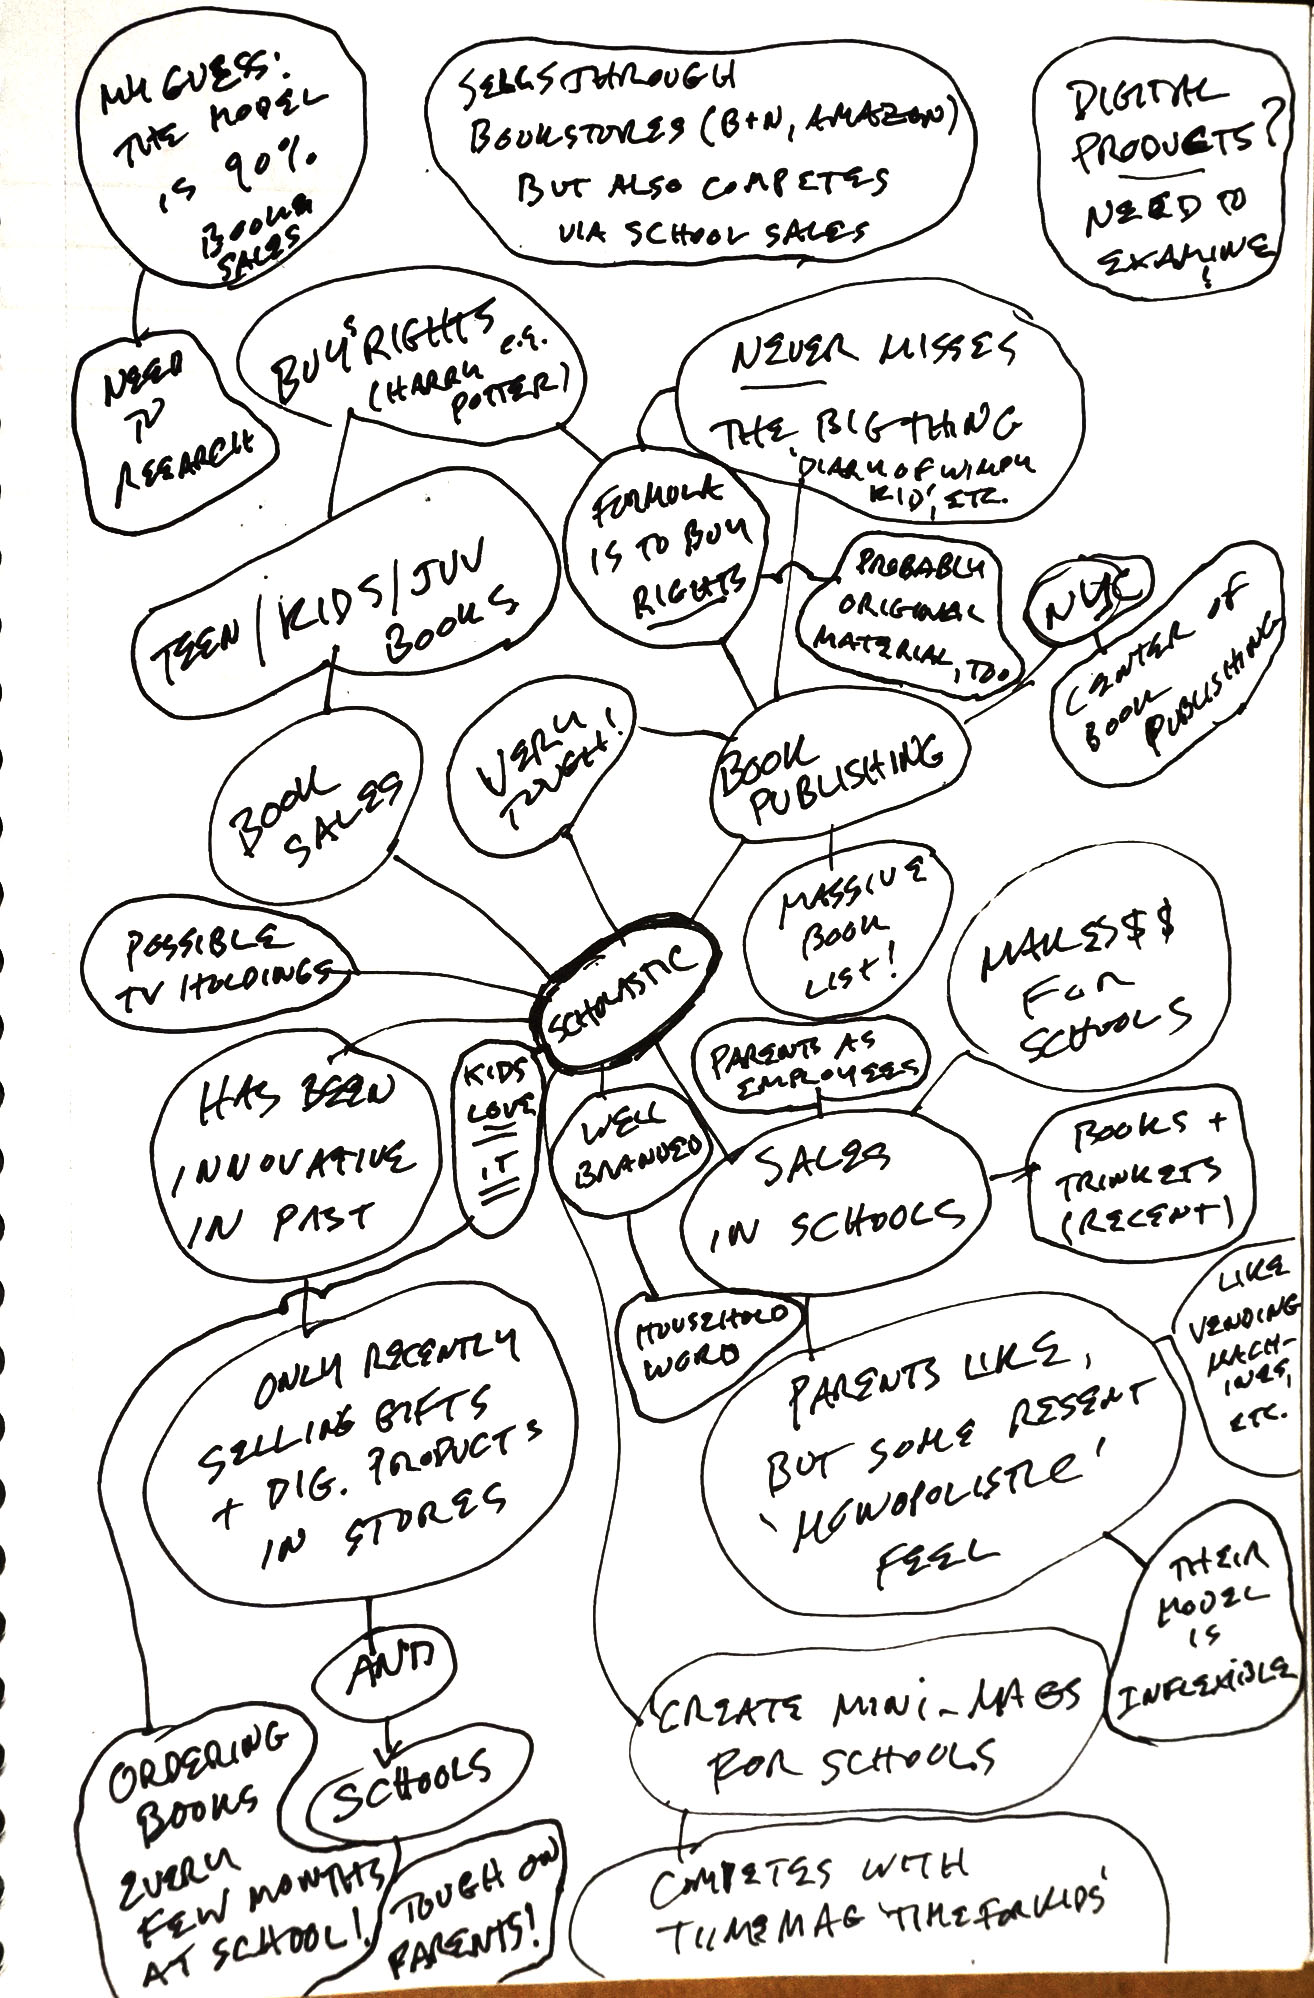 MY GUESS:
THE MODEL
IS 90%
BOOK
SALES
SELLS THROUGH
BOOKSTORES (B+N, AMAZON)
BUT ALSO COMPETES
VIA SCHOOL SALES
DIGITAL
PRODUCTS?
NEED TO
EXAMINE!
NEED
TO
RESEARCH
BUYS RIGHTS
(HARRY e.g.
POTTER)
NEVER MISSES
THE BIG THING
'DIARY OF WIMPY
KID', ETC.
FORMULA
IS TO BUY
RIGHTS
PROBABLY
ORIGINAL
MATERIAL, TOO
NYC
CENTER OF
BOOK
PUBLISHING
TEEN/KIDS/JUV
BOOKS
BOOK
SALES
VERY
TOUGH!
BOOK
PUBLISHING
MASSIVE
BOOK
LIST!
POSSIBLE
TV HOLDINGS
SCHOLASTIC
MAKES $$
FOR
SCHOOLS
PARENTS AS
EMPLOYEES
HAS BEEN
INNOVATIVE
IN PAST
KIDS
LOVE
IT
WELL
BRANDED
SALES
IN SCHOOLS
BOOKS +
TRINKETS
(RECENT)
HOUSEHOLD
WORD
LIKE
VENDING
MACH-
INES,
ETC.
ONLY RECENTLY
SELLING GIFTS
+ DIG. PRODUCTS
IN STORES
PARENTS LIKE,
BUT SOME RESENT
'MONOPOLISTIC'
FEEL
THEIR
MODEL
IS
INFLEXIBLE
AND
SCHOOLS
CREATE MINI-MAGS
FOR SCHOOLS
ORDERING
BOOKS
EVERY
FEW MONTHS
AT SCHOOL!
TOUGH ON
PARENTS!
COMPETES WITH
TIME MAG 'TIME FOR KIDS'